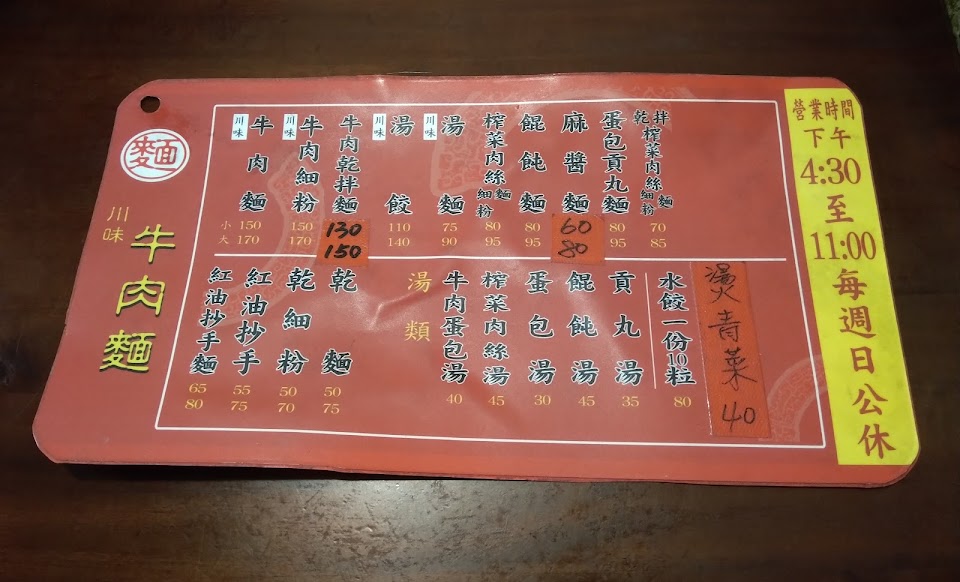 麵
川味
牛肉麵
川味 牛肉麵 小 150 大 170
川味 牛肉細粉 150 170
牛肉乾拌麵 130 150
川味 湯餃 110 140
川味 湯麵 75 90
榨菜肉絲細粉麵 80 95
餛飩麵 80 95
麻醬麵 60 80
蛋包貢丸麵 80 95
乾拌榨菜肉絲細粉麵 70 85
紅油抄手麵 65 80
紅油抄手 55 75
乾細粉 50 70
乾麵 50 75
湯類
牛肉蛋包湯 40
榨菜肉絲湯 45
蛋包湯 30
餛飩湯 45
貢丸湯 35
水餃一份10粒 80
燙青菜 40
營業時間
下午
4:30
至
11:00
每週日公休